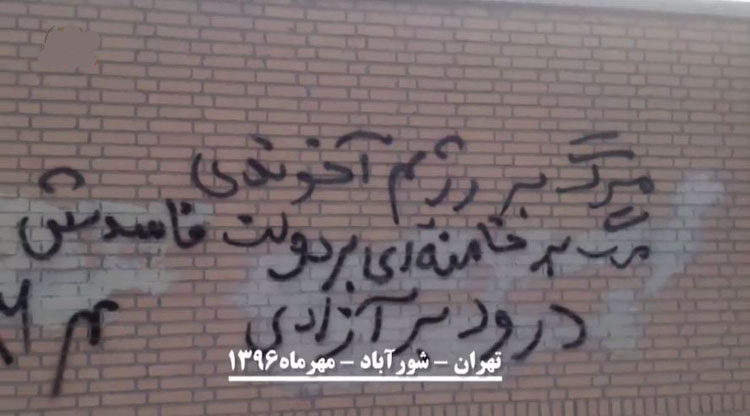 مرگ بر رژیم آخوندی
مرگ بر خامنه‌ای بر دولت فاسدش
درود بر آزادی م
تهران - شورآباد - مهرماه۱۳۹۶